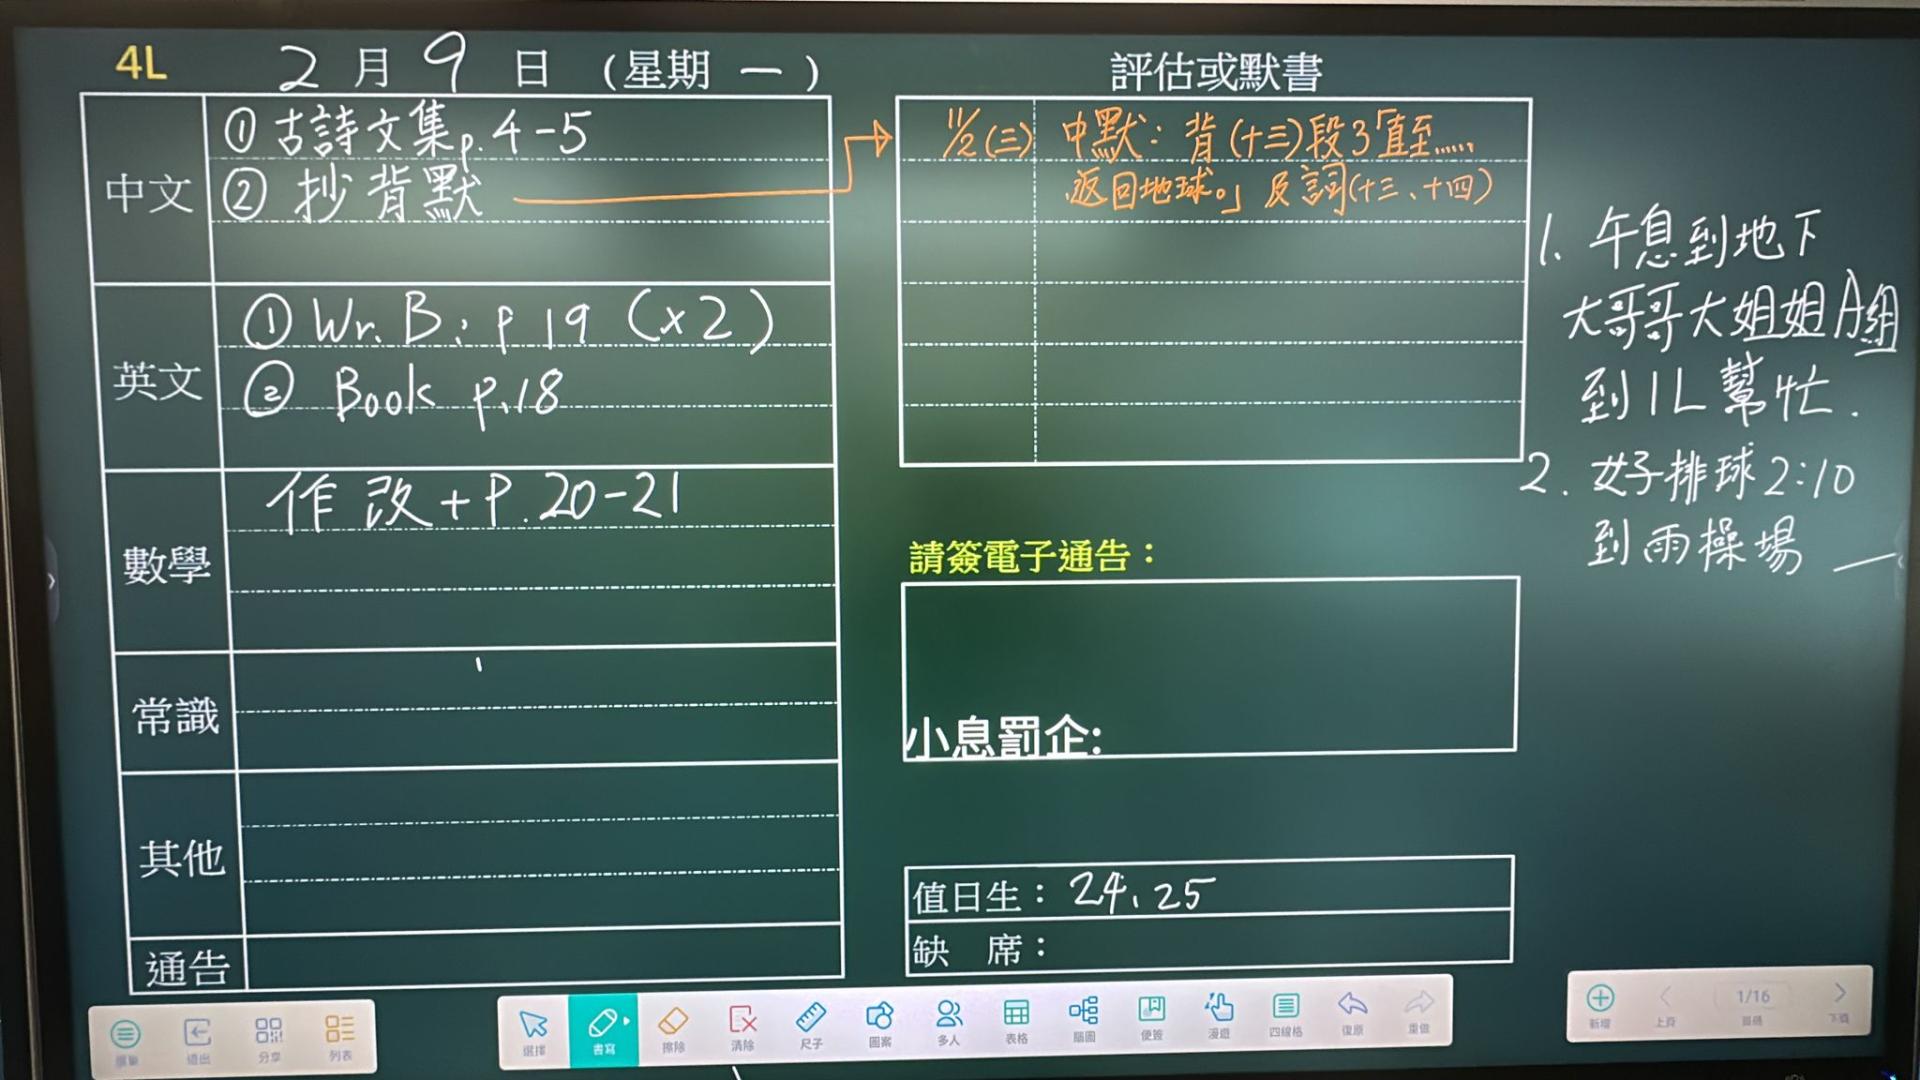 4L 2月9日(星期一)
中文
①古詩文集p.4-5
②抄背默
英文
①Wr. B: p 19 (x2)
② Book p.18
數學
作改+P.20-21
常識
其他
通告
評估或默書
11/2(三) 中默：背(十三)段3「直至......
返回地球。」及詞(十三、十四)
請簽電子通告：
小息罰企:
值日生：24、25
缺 席：
1. 午息到地下
大哥哥大姐姐A組
到1L幫忙.
2. 女子排球2:10
到雨操場
選單 退出 分享 列表
選擇 書寫 擦除 清除 尺子 圖案 多人 表格 腦圖 便簽 漫遊 四線格 復原 重做
新增 上頁 1/16 頁碼 下頁